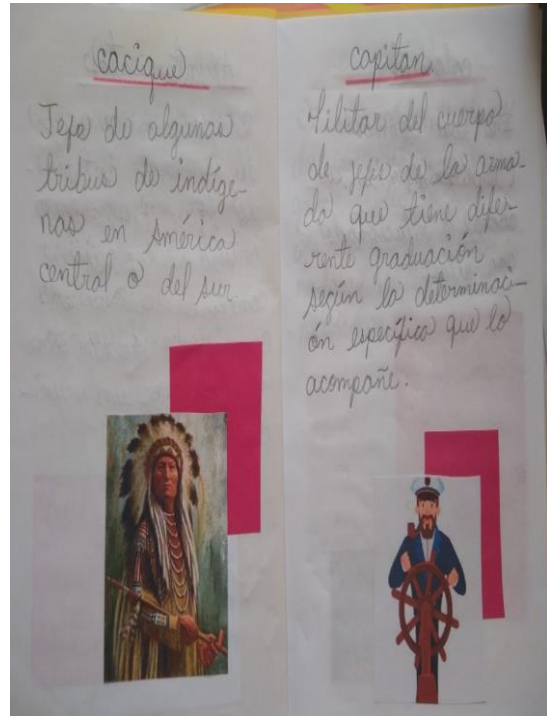 cacique
Jefe de algunas
tribus de indíge-
nas en América
central o del sur.
capitan
Militar del cuerpo
de jefes de la arma-
da que tiene dife-
rente graduación
según la determinaci-
ón específica que lo
acompañe.